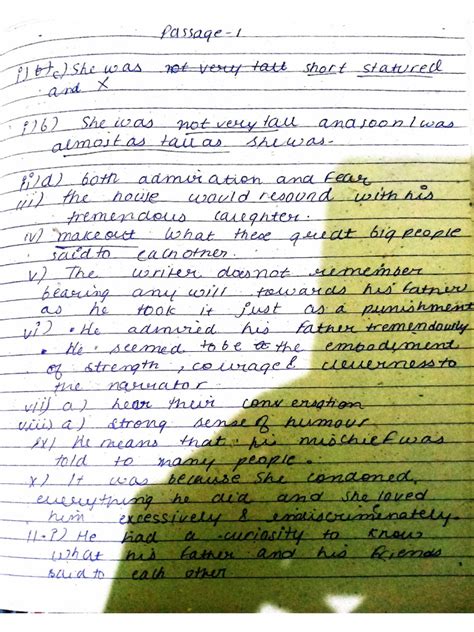 Passage-1
i) b) c) She was not very tall short statured
and X
i) b) She was not very tall and soon I was
almost as tall as she was.
ii) d) both admiration and Fear
iii) the house would resound with his
tremendous laughter.
iv) make out what these great big people
said to each other.
v) The writer does not remember
bearing any will towards his father
as he took it just as a punishment
vi) • He admired his father tremendously
• He seemed to be the embodiment
of strength, courage & cleverness to
the narrator
vii) a) hear their conversation
viii) a) strong sense of humour
ix) He means that his mischief was
told to many people.
x) It was because she condoned
everything he did and she loved
him excessively & endiscriminately.
11. i) He had a curiosity to know
what his father and his friends
said to each other